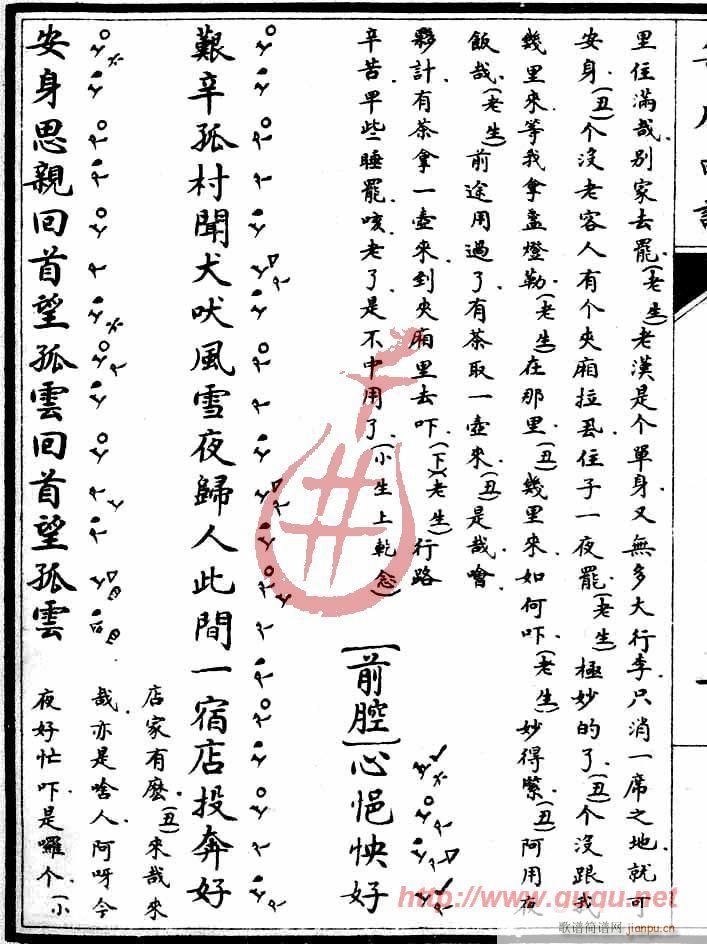 里住滿哉別家去罷(老生)老漢是个單身又無多大行李只消一席之地就可
安身(丑)个沒老客人有个夾廂拉丟住子一夜罷(老生)極妙的了(丑)个沒跟我
幾里來等我拿盞燈勒(老生)在那里(丑)幾里來如何吓(老生)妙得緊(丑)阿用夜
飯哉(老生)前途用過了有茶取一壺來(丑)是哉噲
夥計有茶拿一壺來到夾廂里去吓(下)(老生)行路
辛苦早些睡罷咳老了是不中用了(小生上乾念)
[前腔]心悒怏好
艱辛孤村聞犬吠風雪夜歸人此間一宿店投奔好
店家有麼(丑)來哉來
哉亦是啥人阿呀今
安身思親回首望孤雲回首望孤雲
夜好忙吓是囉个(小
http://www.ququ.net
歌谱简谱网 jianpu.cn